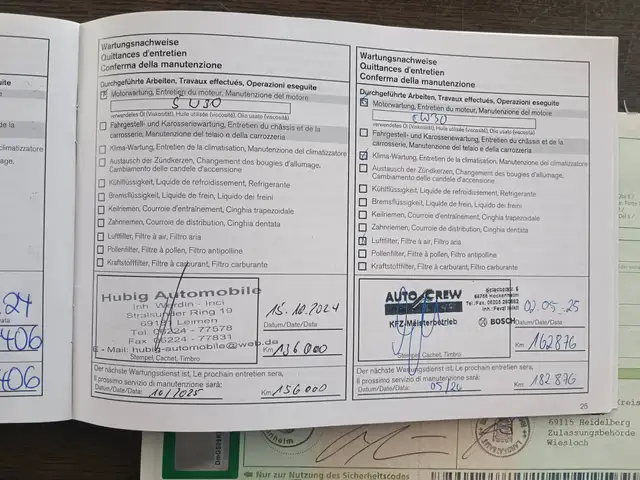 Wartungsnachweise
Quittances d'entretien
Conferma della manutenzione
Durchgeführte Arbeiten, Travaux effectués, Operazioni eseguite
Motorwartung, Entretien du moteur, Manutenzione del motore
5W30
verwendetes Öl (Viscosität), Huile utilisée (viscosité), Olio usato (viscosità)
Fahrgestell- und Karosseriewartung, Entretien du châssis et de la
carrosserie, Manutenzione del telaio e della carrozzeria
Klima-Wartung, Entretien de la climatisation, Manutenzione del climatizzatore
Austausch der Zündkerzen, Changement des bougies d'allumage,
Cambiamento delle candele d'accensione
Kühlflüssigkeit, Liquide de refroidissement, Refrigerante
Bremsflüssigkeit, Liquide de frein, Liquido dei freini
Keilriemen, Courroie d'entraînement, Cinghia trapezoidale
Zahnriemen, Courroie de distribution, Cinghia dentata
Luftfilter, Filtre à air, Filtro aria
Pollenfilter, Filtre à pollen, Filtro antipolline
Kraftstofffilter, Filtre à carburant, Filtro carburante
Hubig Automobile
Stralsunder Ring 19
Leimen
Tel. 06224 - 77578
Fax 06224 - 77831
E - Mail: hubig-automobile@web.de
Stempel, Cachet, Timbro
15.10.2024
Datum/Date/Data
Km 136 000
Der nächste Wartungsdienst ist, Le prochain entretien sera,
Il prossimo servizio di manutenzione sarà:
Datum/Date/Data: 10/2025
Km: 156 000
Wartungsnachweise
Quittances d'entretien
Conferma della manutenzione
Durchgeführte Arbeiten, Travaux effectués, Operazioni eseguite
Motorwartung, Entretien du moteur, Manutenzione del motore
verwendetes Öl (Viscosität), Huile utilisée (viscosité), Olio usato (viscosità)
Fahrgestell- und Karosseriewartung, Entretien du châssis et de la
carrosserie, Manutenzione del telaio e della carrozzeria
Klima-Wartung, Entretien de la climatisation, Manutenzione del climatizzatore
Austausch der Zündkerzen, Changement des bougies d'allumage,
Cambiamento delle candele d'accensione
Kühlflüssigkeit, Liquide de refroidissement, Refrigerante
Bremsflüssigkeit, Liquide de frein, Liquido dei freini
Keilriemen, Courroie d'entraînement, Cinghia trapezoidale
Zahnriemen, Courroie de distribution, Cinghia dentata
Luftfilter, Filtre à air, Filtro aria
Pollenfilter, Filtre à pollen, Filtro antipolline
Kraftstofffilter, Filtre à carburant, Filtro carburante
AUTO CREW
Hockenheim
KFZ-Meisterbetrieb
BOSCH
Stempel, Cachet, Timbro
02.05.25
Datum/Date/Data
Km: 162876
Der nächste Wartungsdienst ist, Le prochain entretien sera,
Il prossimo servizio di manutenzione sarà:
Datum/Date/Data: 05/26
Km: 182 876
25
.24
406
406
69115 Heidelberg
Zulassungsbehörde
Wiesloch
Nur zur Nutzung des Sicherheitscodes